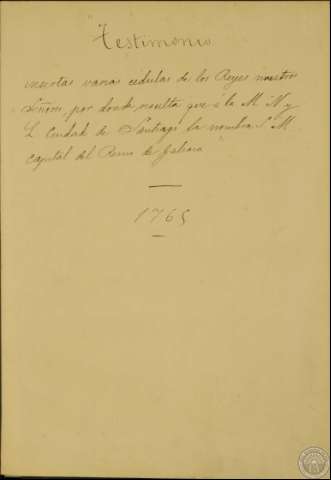 Testimonio
insertas varias cédulas de los Reyes nuestros
Señores, por donde resulta que á la M. N. y
L. Ciudad de Santiago la nombra S. M.
capital del Reino de Galicia
1765